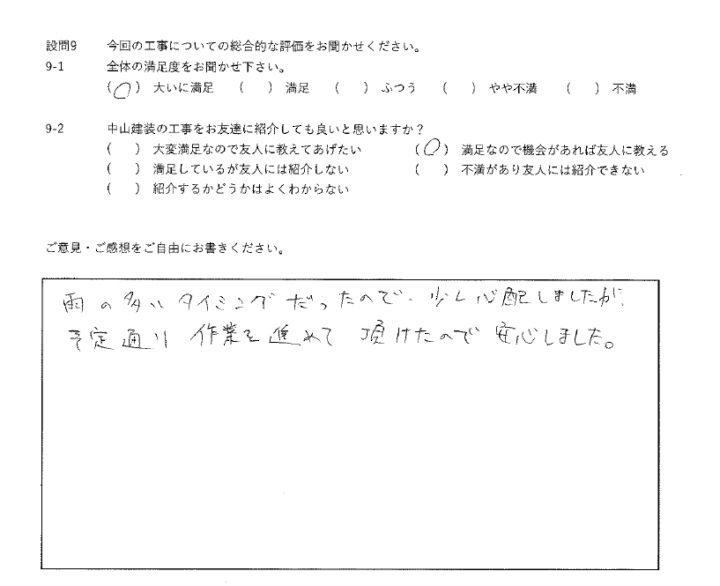 設問9 今回の工事についての総合的な評価をお聞かせください。
9-1 全体の満足度をお聞かせ下さい。
(○) 大いに満足 ( ) 満足 ( ) ふつう ( ) やや不満 ( ) 不満
9-2 中山建装の工事をお友達に紹介しても良いと思いますか？
( ) 大変満足なので友人に教えてあげたい (○) 満足なので機会があれば友人に教える
( ) 満足しているが友人には紹介しない ( ) 不満があり友人には紹介できない
( ) 紹介するかどうかはよくわからない
ご意見・ご感想をご自由にお書きください。
雨の多いタイミングだったので、少し心配しましたが、
予定通り作業を進めて頂けたので安心しました。